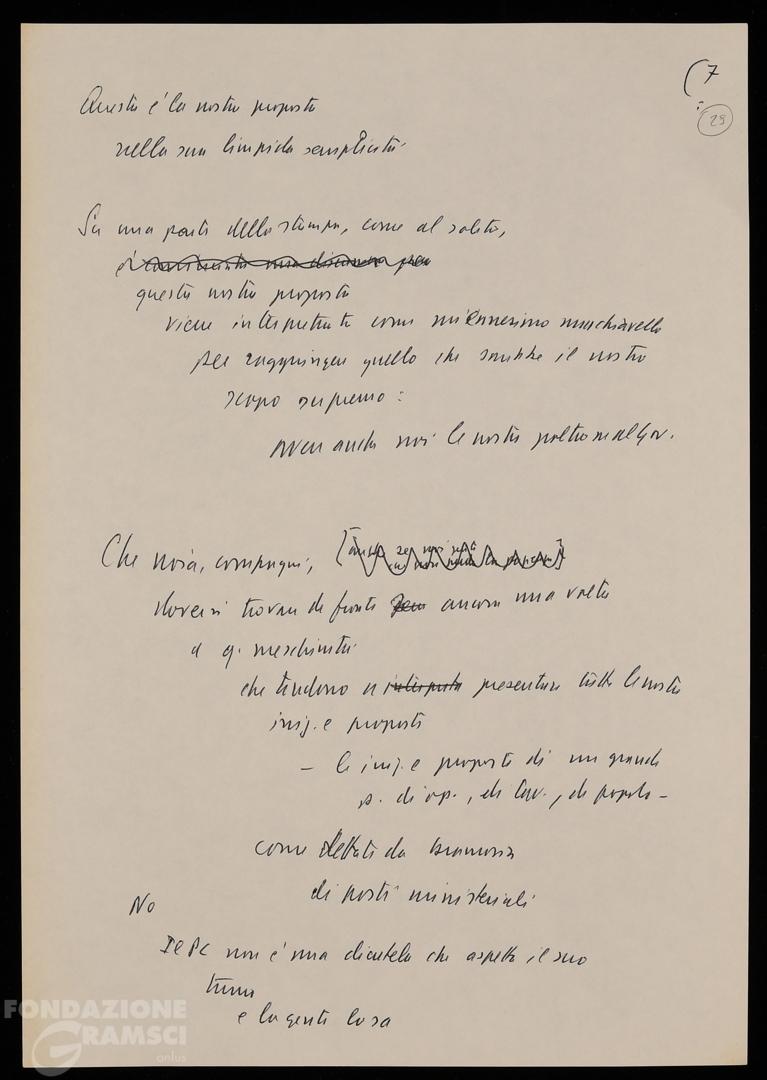 (7
29
Questa è la nostra proposta
nella sua limpida semplicità.
Su una parte della stampa, come al solito,
è
questa nostra proposta
viene interpretata come millennesimo machiavello
per raggiungere quello che sarebbe il nostro
scopo supremo:
avere anche noi le nostre poltrone al Gov.
Che noia, compagni,
doversi trovare di fronte ancora una volta
a q. meschinità
che tendono a presentare tutte le nostre
iniz. e proposte
– le iniz. e proposte di un grande
p. di op., di lav., di popolo –
come dettate da bramosia
di posti ministeriali
No
Il PC non è una clientela che aspetta il suo
turno
e la gente lo sa
FONDAZIONE
GRAMSCI
onlus